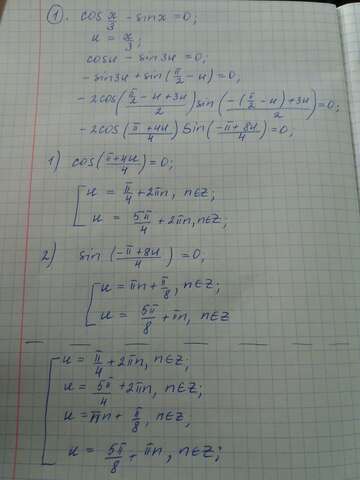 1. cos x/3 - sinx = 0;
u = x/3;
cosu - sin3u = 0;
-sin3u + sin(π/2 - u) = 0;
-2cos((π/2 - u + 3u)/2) sin((-(π/2 - u) + 3u)/2) = 0;
-2cos((π + 4u)/4) sin((-π + 8u)/4) = 0;
1) cos((π + 4u)/4) = 0;
[ u = π/4 + 2πn, n∈Z;
u = 5π/4 + 2πn, n∈Z;
2) sin((-π + 8u)/4) = 0;
[ u = πn + π/8, n∈Z;
u = 5π/8 + πn, n∈Z
[ u = π/4 + 2πn, n∈Z;
u = 5π/4 + 2πn, n∈Z;
u = πn + π/8, n∈Z;
u = 5π/8 + πn, n∈Z;